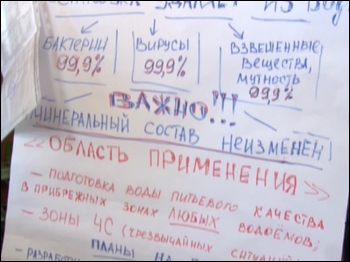 УДАЛЯЕТ ИЗ ВОД
БАКТЕРИИ
99,9%
ВИРУСЫ
99,9%
ВЗВЕШЕННЫЕ
ВЕЩЕСТВА,
МУТНОСТЬ
99,9%
ВАЖНО!!!
МИНЕРАЛЬНЫЙ СОСТАВ НЕИЗМЕНЕН
«ОБЛАСТЬ ПРИМЕНЕНИЯ»
- ПОДГОТОВКА ВОДЫ ПИТЬЕВОГО КАЧЕСТВА
В ПРИБРЕЖНЫХ ЗОНАХ ЛЮБЫХ ВОДОЁМОВ;
- ЗОНЫ ЧС (ЧРЕЗВЫЧАЙНЫХ СИТУАЦИЙ
ПЛАНЫ НА
- РАЗРАБОТ